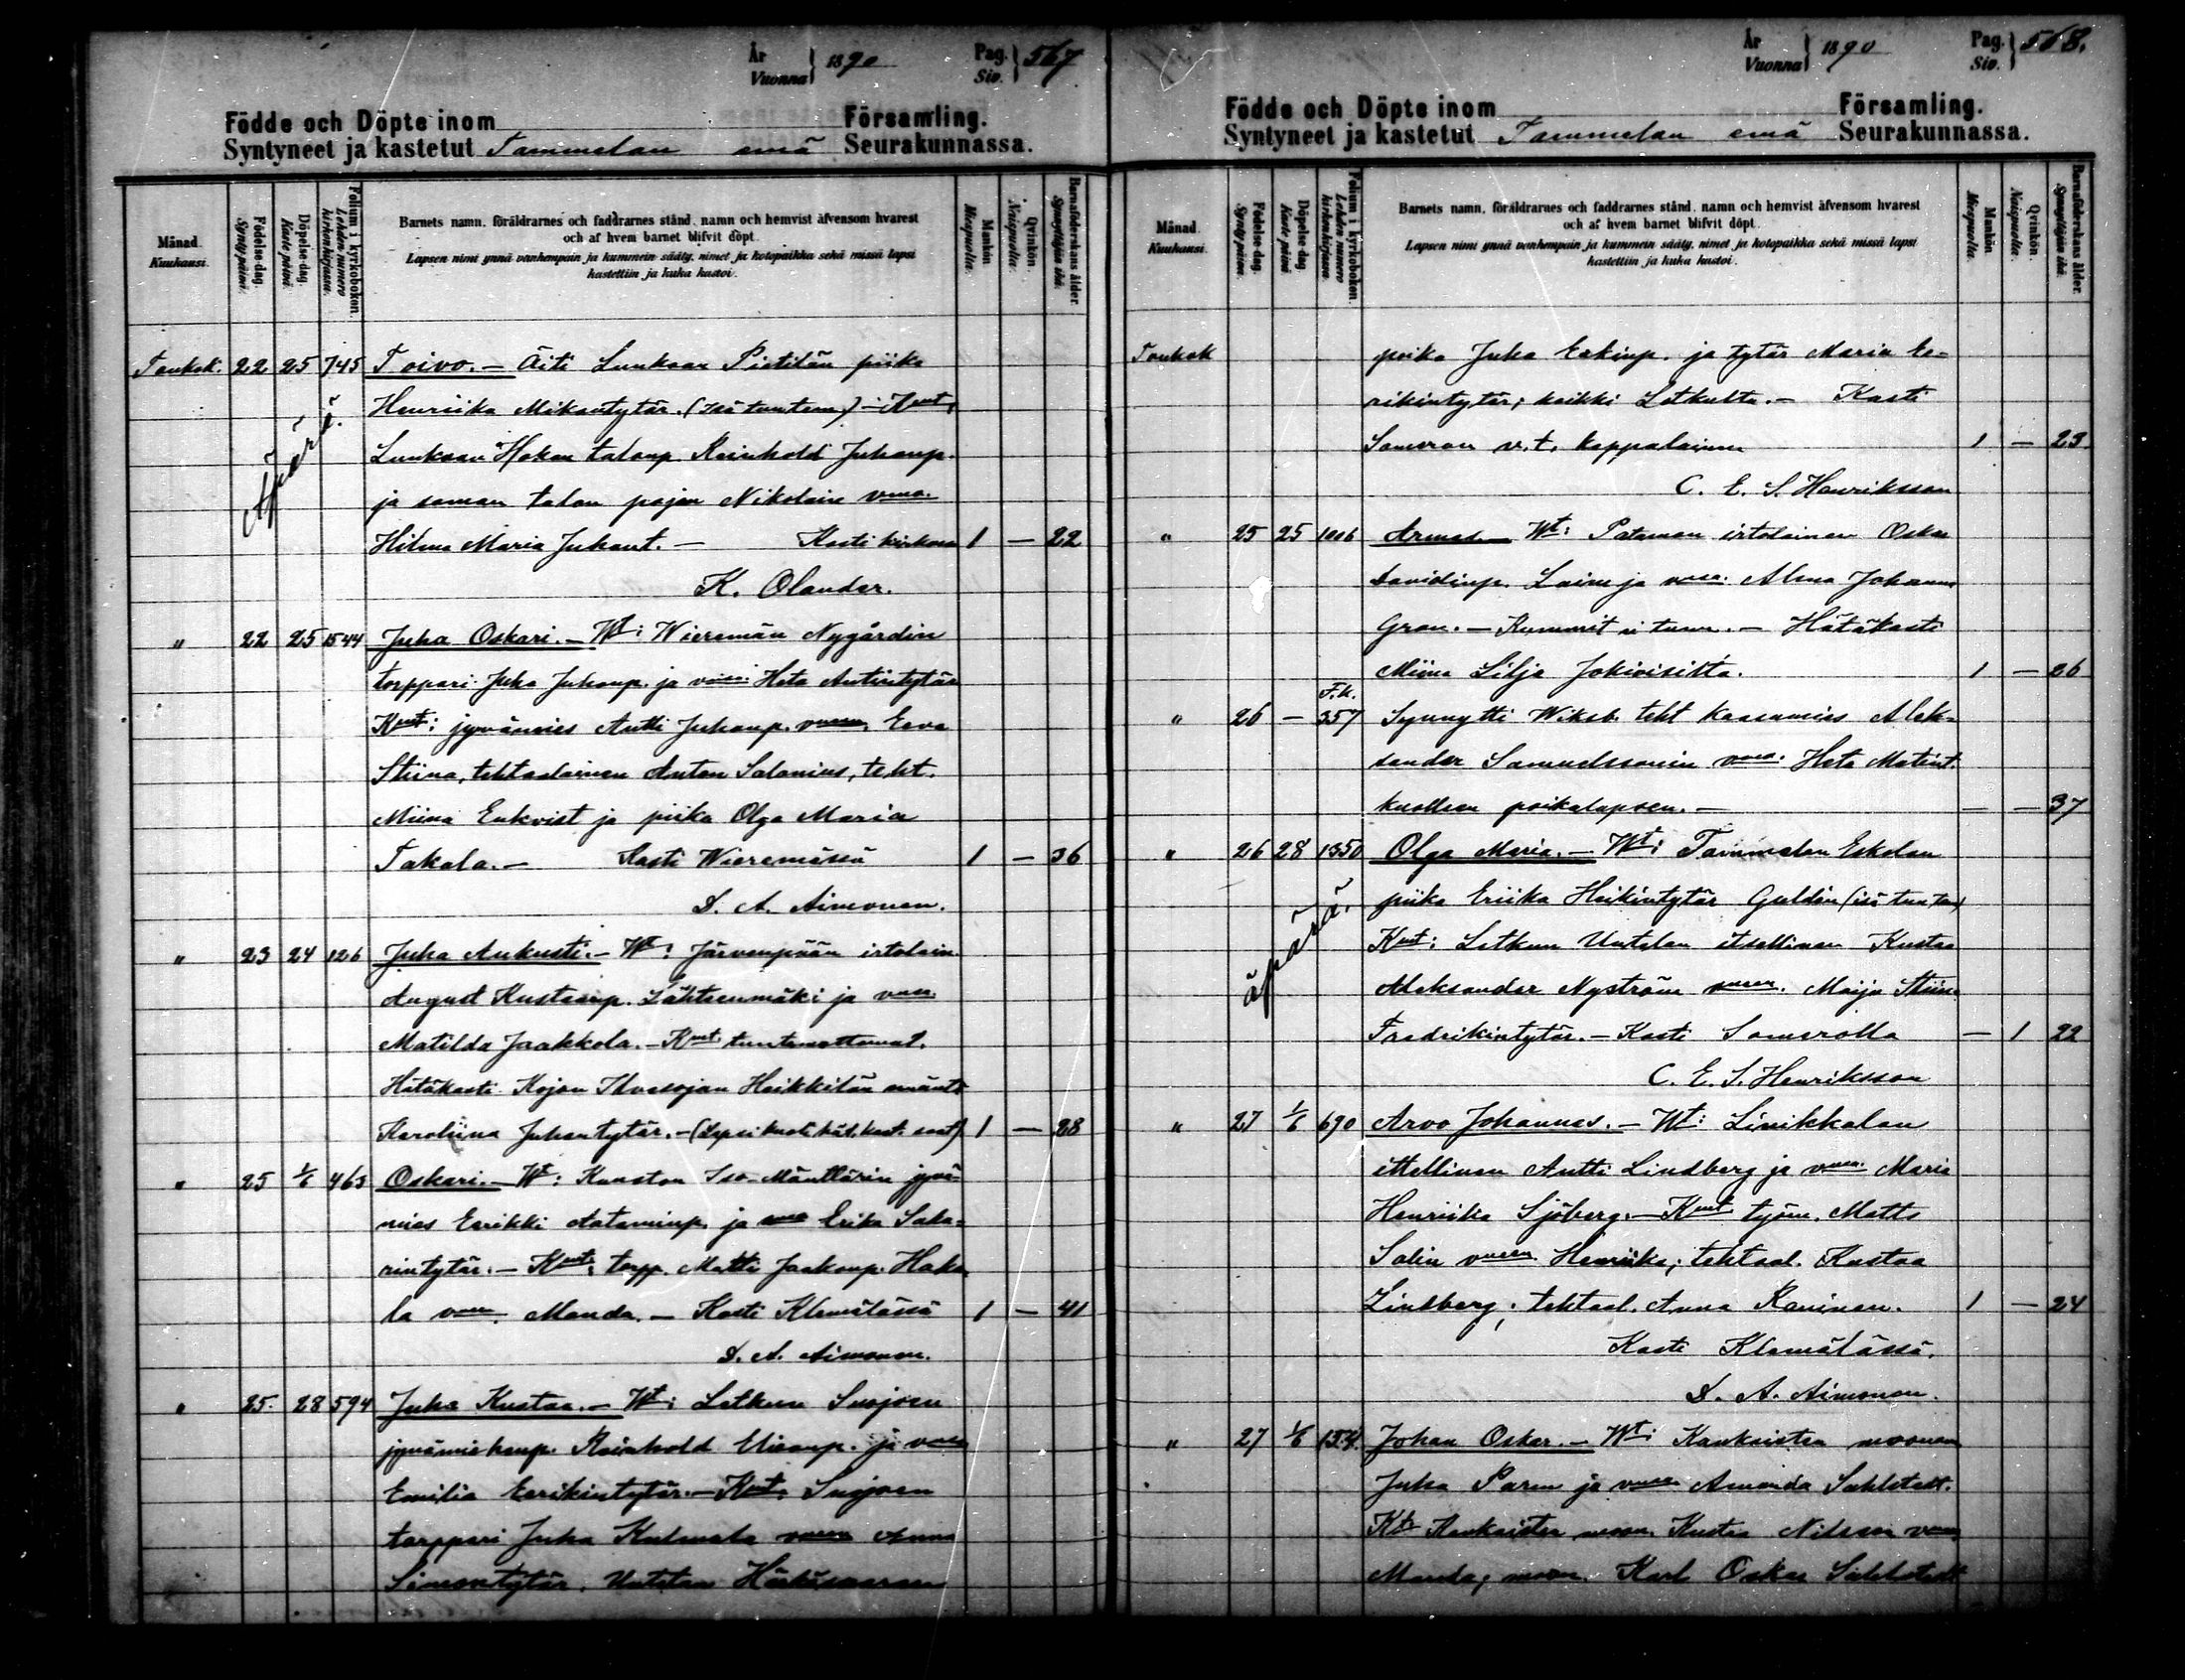 År Vuonna } 1890 Pag. Siv. } 567
Födde och Döpte inom Församling.
Syntyneet ja kastetut Tammelan emä Seurakunnassa.
Månad. Kuukausi.
Födelse-dag. Synty päivä.
Döpelse-dag. Kaste päivä
Folium i kyrkoboken. Lehden numero kirkonkirjassa.
Barnets namn, föräldrarnes och faddrarnes stånd, namn och hemvist äfvensom hvarest
och af hvem barnet blifvit döpt.
Lapsen nimi ynnä vanhempain ja kummein sääty, nimet ja kotopaikka sekä missä lapsi
kastettiin ja kuka kastoi.
Mankön. Miespuolia.
Qvinkön. Naispuolia.
Barnaföderskans ålder. Synnyttäjän ikä.
Toukok. 22 25 745 Toivo. — Äiti Lunkaan Pietilän piika
Henriika Mikontytär. (isä tuntem) — Kmt.
Lunkaan Hakan talonp. Reinhold Juhanp.
ja saman talon pojan Nikolain vmo.
Hilma Maria Juhant. — Kasti kirkossa 1 — 22
Äpärä.
K. Olander.
" 22 25 1544 Juha Oskari. — Wt: Wieremän Nygårdin
torppari Juha Juhanp. ja vmo. Heta Antintytär
Kmt: jyvämies Antti Juhanp. vmon. Eeva
Stiina, tehtaalainen Anton Salonius, teht.
Miina Enkvist ja piika Olga Maria
Takala. — Kasti Wieremässä 1 — 36
D. A. Aimonen.
" 23 24 126 Juha Aukusti. — Wt: Järvenpään irtolain.
August Kustaanp. Lähteenmäki ja vmon.
Matilda Jaakkola. — Kmt. tuntemattomat.
Hätäkasti Kojon Heikkilän emäntä
Karoliina Juhantytär. — 1 — 28
" 25 1/6 463 Oskari. — Wt: Kauston Iso-Mänttärin jyvä-
mies Eerikki Aataminp. ja vmo Erika Saka-
rintytär. — Kmt: torp. Matti Jaakonp. Haka-
la vmon. Manda. — Kasti Klemelässä 1 — 41
D. A. Aimonen.
" 25. 28 594 Juha Kustaa. — Wt: Letkun Suojoen
jyvämiehenp. Reinhold Eliaanp. ja vmo
Emilia Eerikintytär. — Kmt: Suojoen
torppari Juha Kulmala vmon Anna
Simontytär, Untolan
År Vuonna } 1890 Pag. Siv. } 568.
Födde och Döpte inom Församling.
Syntyneet ja kastetut Tammelan emä Seurakunnassa.
Månad. Kuukausi.
Födelse-dag. Synty päivä.
Döpelse-dag. Kaste päivä
Folium i kyrkoboken. Lehden numero kirkonkirjassa.
Barnets namn, föräldrarnes och faddrarnes stånd, namn och hemvist äfvensom hvarest
och af hvem barnet blifvit döpt.
Lapsen nimi ynnä vanhempain ja kummein sääty, nimet ja kotopaikka sekä missä lapsi
kastettiin ja kuka kastoi.
Mankön. Miespuolia.
Qvinkön. Naispuolia.
Barnaföderskans ålder. Synnyttäjän ikä.
Toukok poika Juha Eskinp. ja tytär Maria Ee-
rikintytär; kaikki Letkulta. — Kasti
Someron v.t. kappalainen 1 — 23
C. E. S. Henriksson
" 25 25 1006 Armas — Wt: Pataman irtolainen Oskar
Davidinp. Laine ja vmo. Alma Johanna
Gran. — Kummit ei tunn. — Hätäkasti
Miina Lilja Jokioisista. 1 — 26
F.k.
" 26 — 357 Synnytti Wiksb. teht kassamies Alek-
sander Samuelssonin vmo. Heta Matint.
kuolleen poikalapsen. — — — 37
" 26 28 1350 Olga Maria. — Wt: Tammelan Eskolan
piika Eriika Heikintytär Guldén (isä tuntem)
Kmt: Letkun Untolan itsellinen Kustaa
Aleksander Nyström vmon. Maija Stiina
Fredrikintytär. — Kasti Somerolla — 1 22
äpärä.
C. E. S. Henriksson
" 27 1/6 690 Arvo Johannes. — Wt: Linikkalan
itsellinen Antti Lindberg ja vmon Maria
Henriika Sjöberg. — Kmt työm. Matts
Salin vmon Henriika; tehtaal. Kustaa
Lindberg; tehtaal. Anna Kaninen. 1 — 24
Kaste Klemelässä.
D. A. Aimonen.
" 27 1/6 Johan Oskar. — Wt: Kaukoisten
Juha Paren ja vmon Amanda Sahlstedt.
Kt: Kaukoisten Kustaa Nilsson vmon
Manda; Karl Oskar Sahlstedt